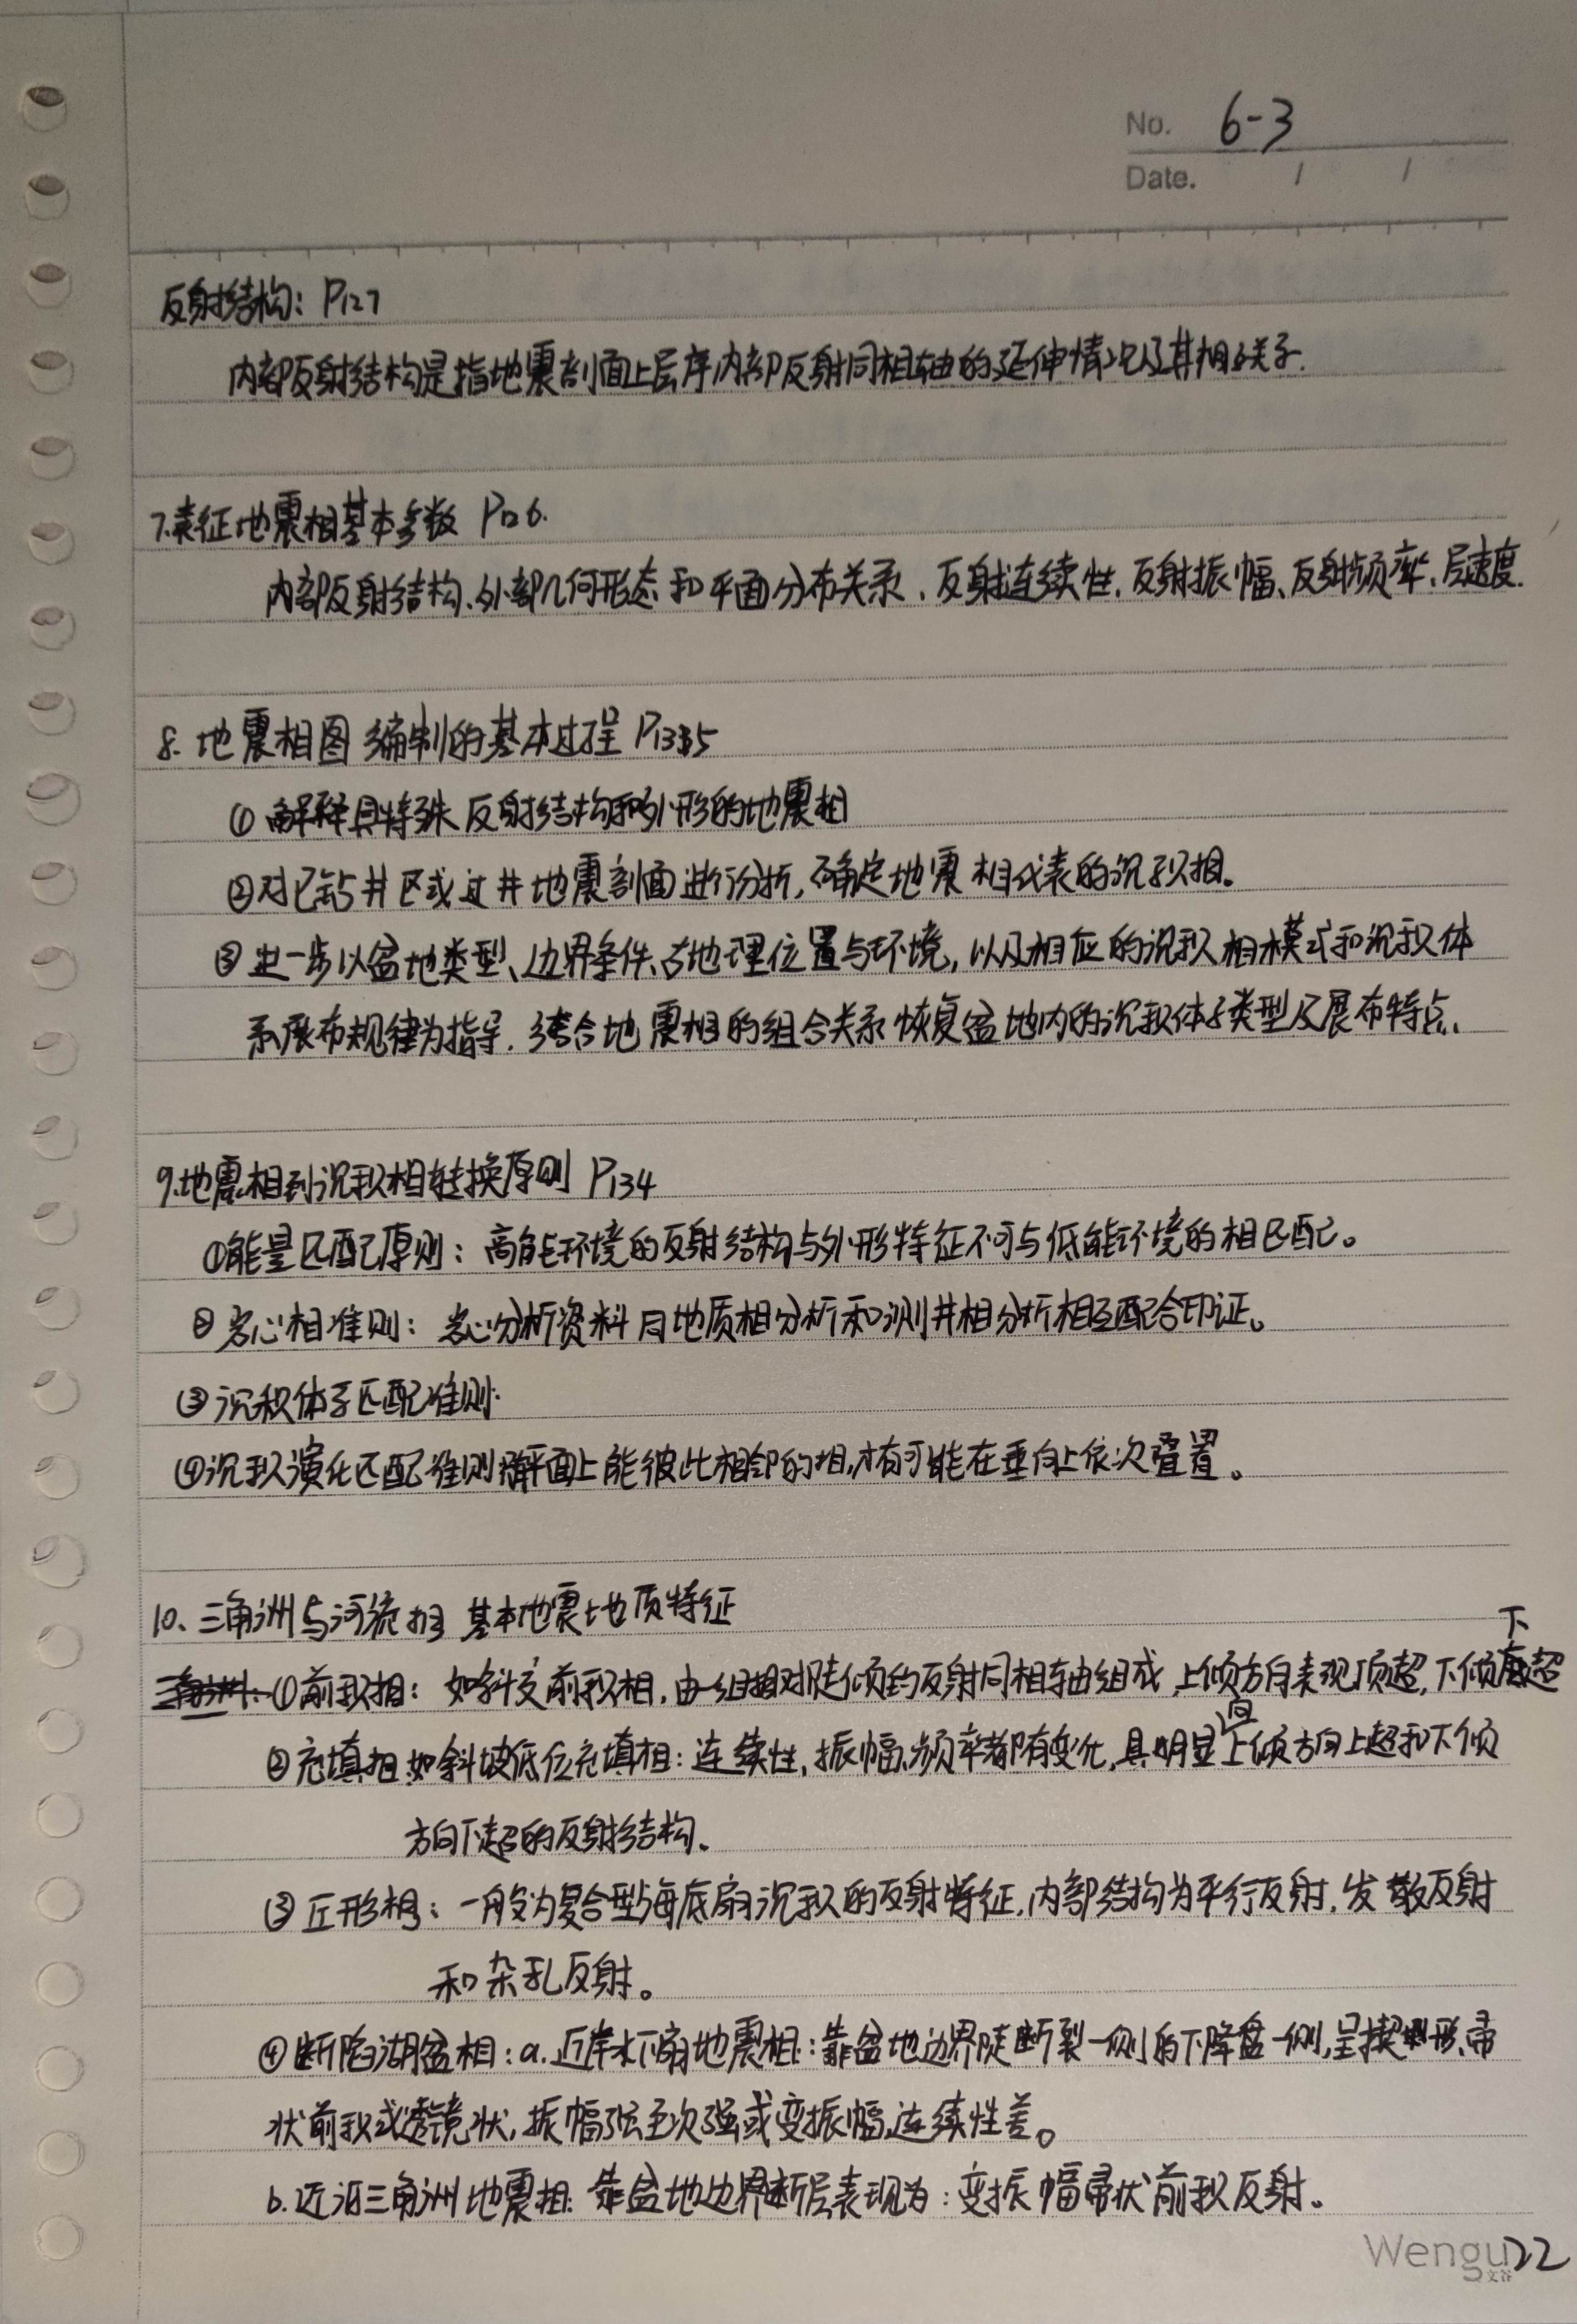 No. 6-3
Date. / /
反射结构: P127
内部反射结构是指地震剖面上层序内部反射同相轴的延伸情况及其相互关系.
7.表征地震相基本参数 P126.
内部反射结构、外部几何形态和平面分布关系、反射连续性、反射振幅、反射频率、层速度.
8. 地震相图编制的基本过程 P135
① 解释具特殊反射结构和外形的地震相
②对已钻井区或过井地震剖面进行分析,确定地震相代表的沉积相。
③进一步以盆地类型、边界条件、古地理位置与环境,以及相应的沉积相模式和沉积体
系展布规律为指导.综合地震相的组合关系恢复盆地内的沉积体系类型及展布特点、
9.地震相到沉积相转换原则 P134
①能量匹配原则: 高能环境的反射结构与外形特征不可与低能环境的相匹配。
②岩心相准则: 岩心分析资料与地质相分析和测井相分析相互配合印证。
③沉积体系匹配准则.
④沉积演化匹配准则 平面上能彼此相邻的相,才有可能在垂向上依次叠置。
10、三角洲与河流相 基本地震地质特征
①前积相: 如斜交前积相,由一组相对陡倾的反射同相轴组成,上倾方向表现顶超,下倾下超
②充填相 如斜坡低位充填相: 连续性,振幅、频率都有变化,具明显向上倾方向上超和下倾
方向下超的反射结构、
③ 丘形相: 一般为复合型海底扇沉积的反射特征,内部结构为平行反射,发散反射
和杂乱反射。
④断陷湖盆相: a. 近岸水下扇地震相: 靠盆地边界陡断裂一侧的下降盘一侧,呈楔形、帚
状前积或透镜状,振幅强至次强或变振幅,连续性差。
b. 近源三角洲地震相: 靠盆地边界断层表现为: 变振幅帚状前积反射。
Wengu 22
文谷